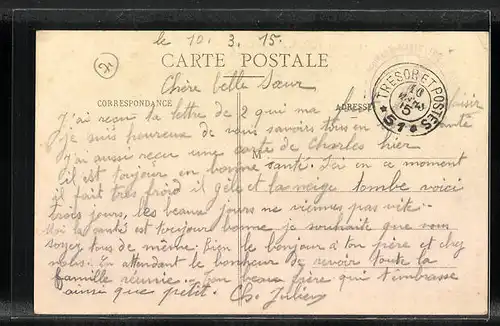 le 10. 3. 15.
CARTE POSTALE
Chère belle Sœur
CORRESPONDANCE
ADRESSE
TRESOR ET POSTES
10
15
* 51 *
J'ai recu la lettre de 2 qui ma plaisir
je suis heureuse de vous savoirs tous en santé
M
J'ai aussi recu une carte de Charles hier
il est toujour en bonne santé. Ici en ce moment
il fait tres froid il gèle et la neige tombe voici
trois jours, les beaux jours ne viennes pas vite.
Moi la santé est toujour bonne je souhaite que vous
soyez tous de même; bien le bonjour à ton père et chez
nous. En attendant le bonheur de revoir toute la
famille réunie. Ton beau frère qui t'embrasse
ainsi que petit. Ch. Julien